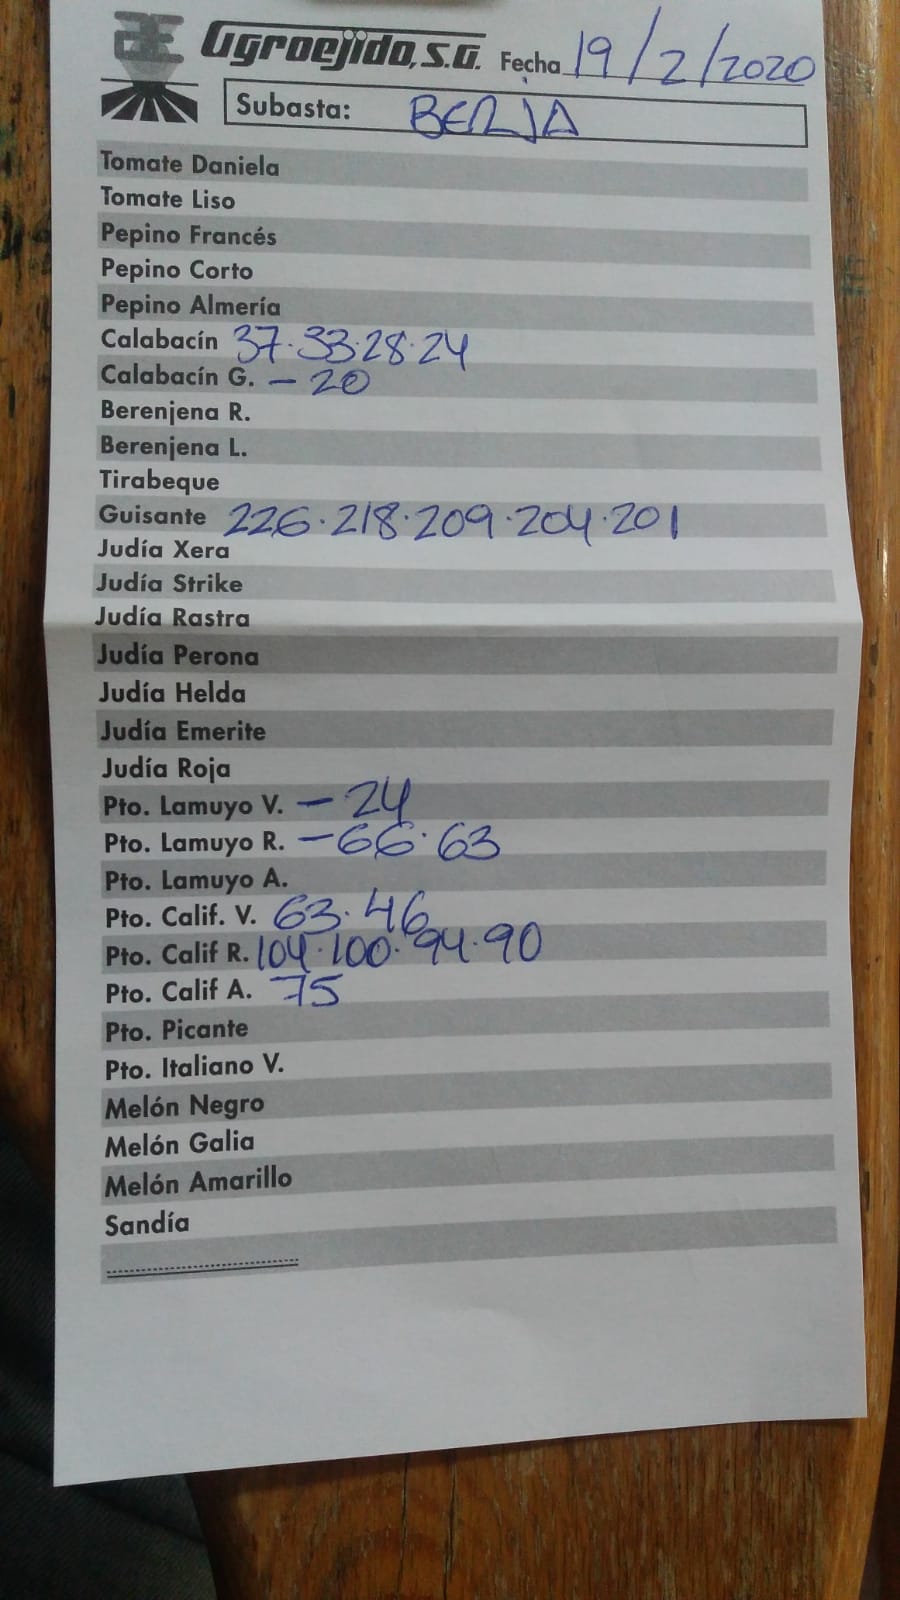 Agroejido, S.A. Fecha 19/2/2020
Subasta: BERJA
Tomate Daniela
Tomate Liso
Pepino Francés
Pepino Corto
Pepino Almería
Calabacín 37·33·28·24
Calabacín G. – 20
Berenjena R.
Berenjena L.
Tirabeque
Guisante 226·218·209·204·201
Judía Xera
Judía Strike
Judía Rastra
Judía Perona
Judía Helda
Judía Emerite
Judía Roja
Pto. Lamuyo V. – 24
Pto. Lamuyo R. – 66·63
Pto. Lamuyo A.
Pto. Calif. V. 63·46
Pto. Calif R. 104·100·94·90
Pto. Calif A. 75
Pto. Picante
Pto. Italiano V.
Melón Negro
Melón Galia
Melón Amarillo
Sandía